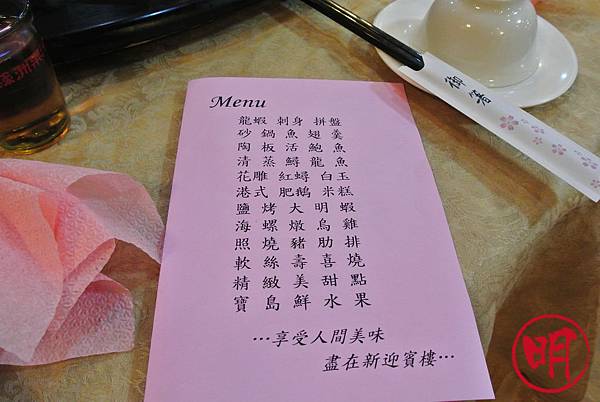 Menu
龍蝦 刺身 拼盤
砂鍋魚翅羹
陶板活鮑魚
清蒸鱘龍魚
花雕 紅蟳 白玉
港式 肥鵝 米糕
鹽烤大明蝦
海螺燉烏雞
照燒豬肋排
軟絲壽喜燒
精緻美甜點
寶島鮮水果
…享受人間美味
盡在新迎賓樓…
御箸
明